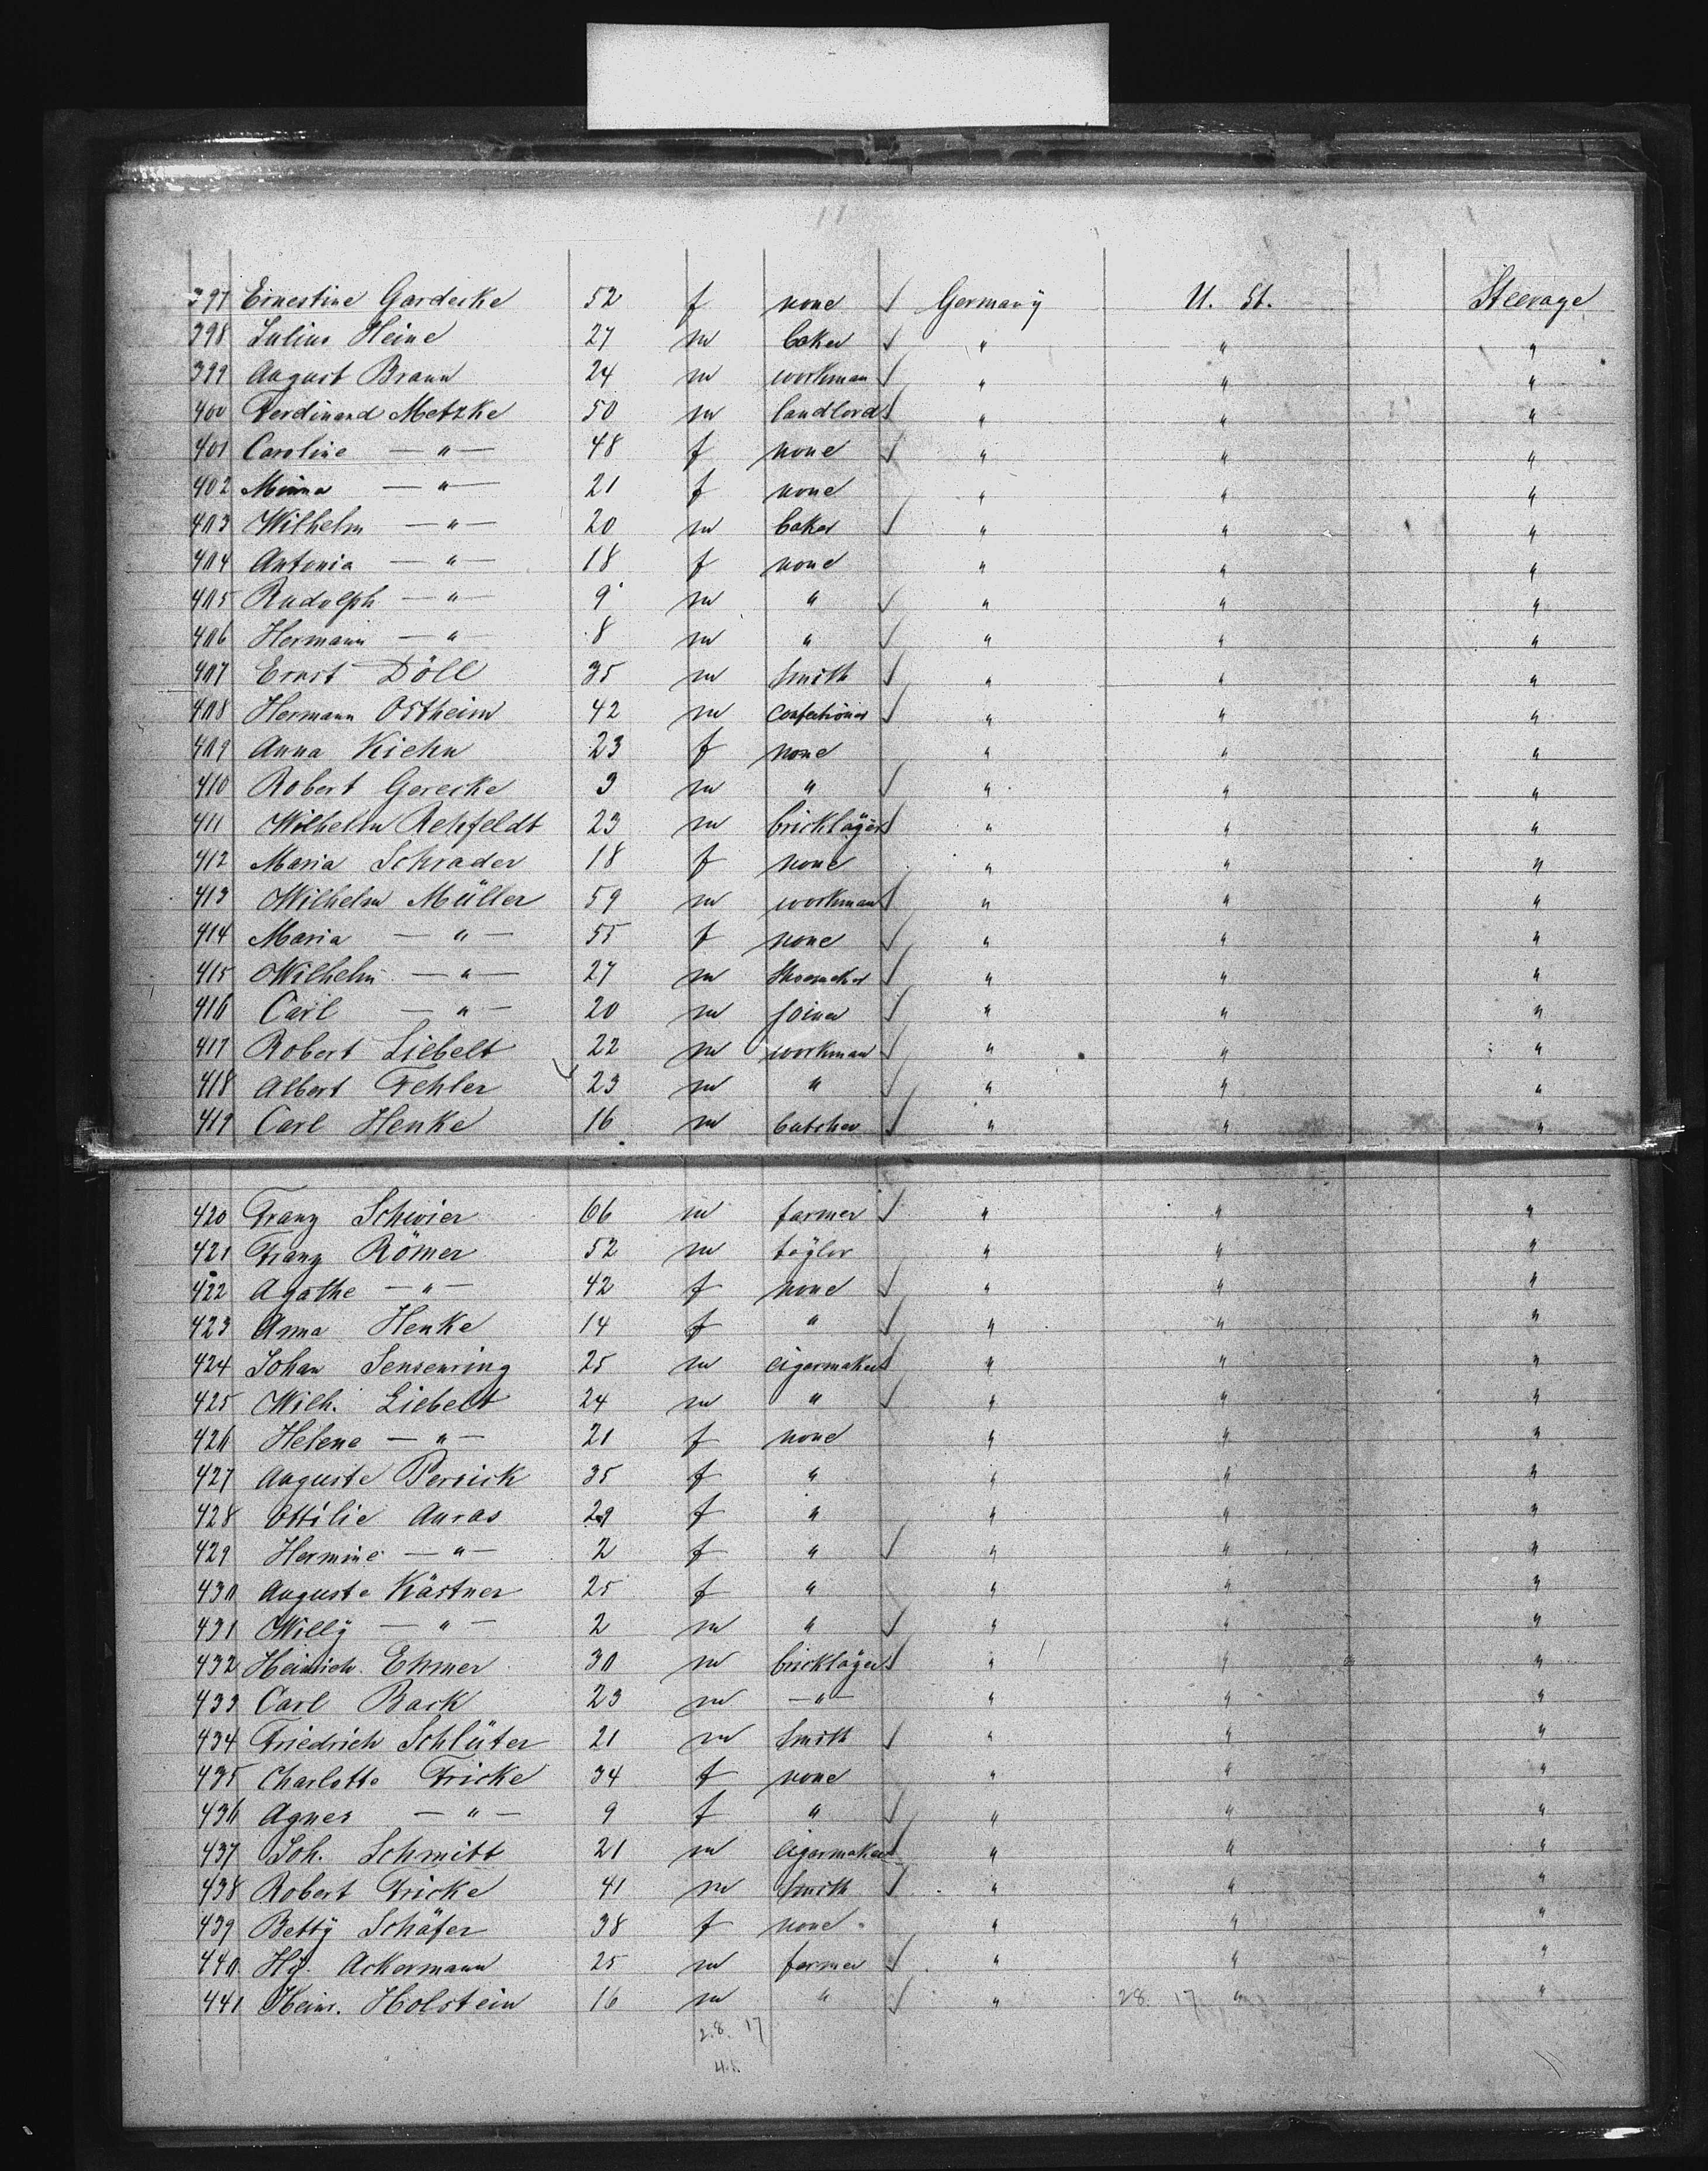 397 Ernestine Gardecke 52 f none √ Germany U. St. Steerage
398 Julius Heine 27 m baker √ " " "
399 August Braun 24 m workman √ " " "
400 Ferdinand Metzke 50 m landlord √ " " "
401 Caroline — " — 48 f none √ " " "
402 Minna — " — 21 f none " " "
403 Wilhelm — " — 20 m baker √ " " "
404 Antonia — " — 18 f none " " "
405 Rudolph — " — 9 m " √ " " "
406 Hermann — " — 8 m " √ " " "
407 Ernst Döll 35 m smith √ " " "
408 Hermann Ostheim 42 m confectioner √ " " "
409 Anna Kiehn 23 f none " " "
410 Robert Gerecke 3 m " √ " " "
411 Wilhelm Rehfeldt 23 m bricklayer √ " " "
412 Maria Schrader 18 f none " " "
413 Wilhelm Müller 59 m workman √ " " "
414 Maria — " — 55 f none √ " " "
415 Wilhelm — " — 27 m shoemaker √ " " "
416 Carl — " — 20 m joiner √ " " "
417 Robert Liebelt 22 m workman √ " " "
418 Albert Fehler √ 23 m " √ " " "
419 Carl Henke 16 m butcher √ " " "
420 Franz Schwier 66 m farmer √ " " "
421 Franz Römer 52 m taylor " " "
422 Agathe — " — 42 f none √ " " "
423 Anna Henke 14 f " √ " " "
424 Johan Sensenring 25 m cigarmaker √ " " "
425 Wilh. Liebelt 24 m " √ " " "
426 Helene — " — 21 f none " " "
427 Auguste Persick 35 f " " " "
428 Ottilie Auras 29 f " " " "
429 Hermine — " — 2 f " √ " " "
430 Auguste Kästner 25 f " " " "
431 Willy — " — 2 m " √ " " "
432 Heinrich Ehmer 30 m bricklayer √ " " "
433 Carl Back 23 m — " — " " "
434 Friedrich Schlüter 21 m smith √ " " "
435 Charlotte Fricke 34 f none " " "
436 Agnes — " — 9 f " √ " " "
437 Joh. Schmitt 21 m cigarmaker √ " " "
438 Robert Fricke 41 m smith √ " " "
439 Betty Schäfer 38 f none " " "
440 Hy. Ackermann 25 m farmer √ " " "
441 Heinr. Holstein 16 m " √ " 28 17 " "
28. 17